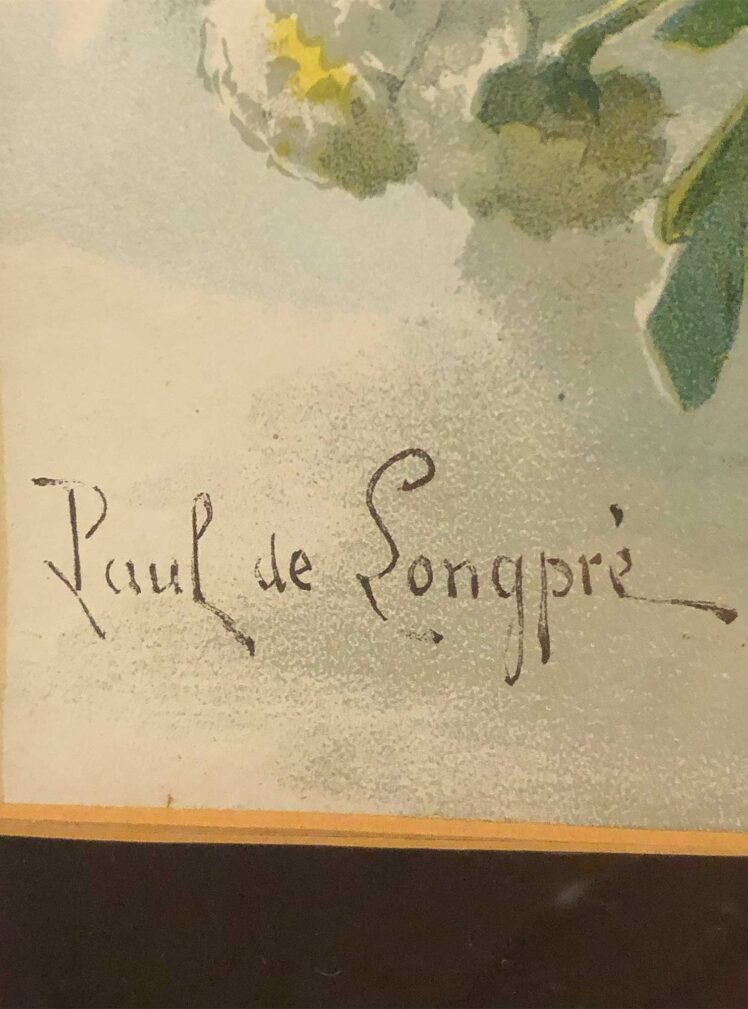 Paul de Longpré